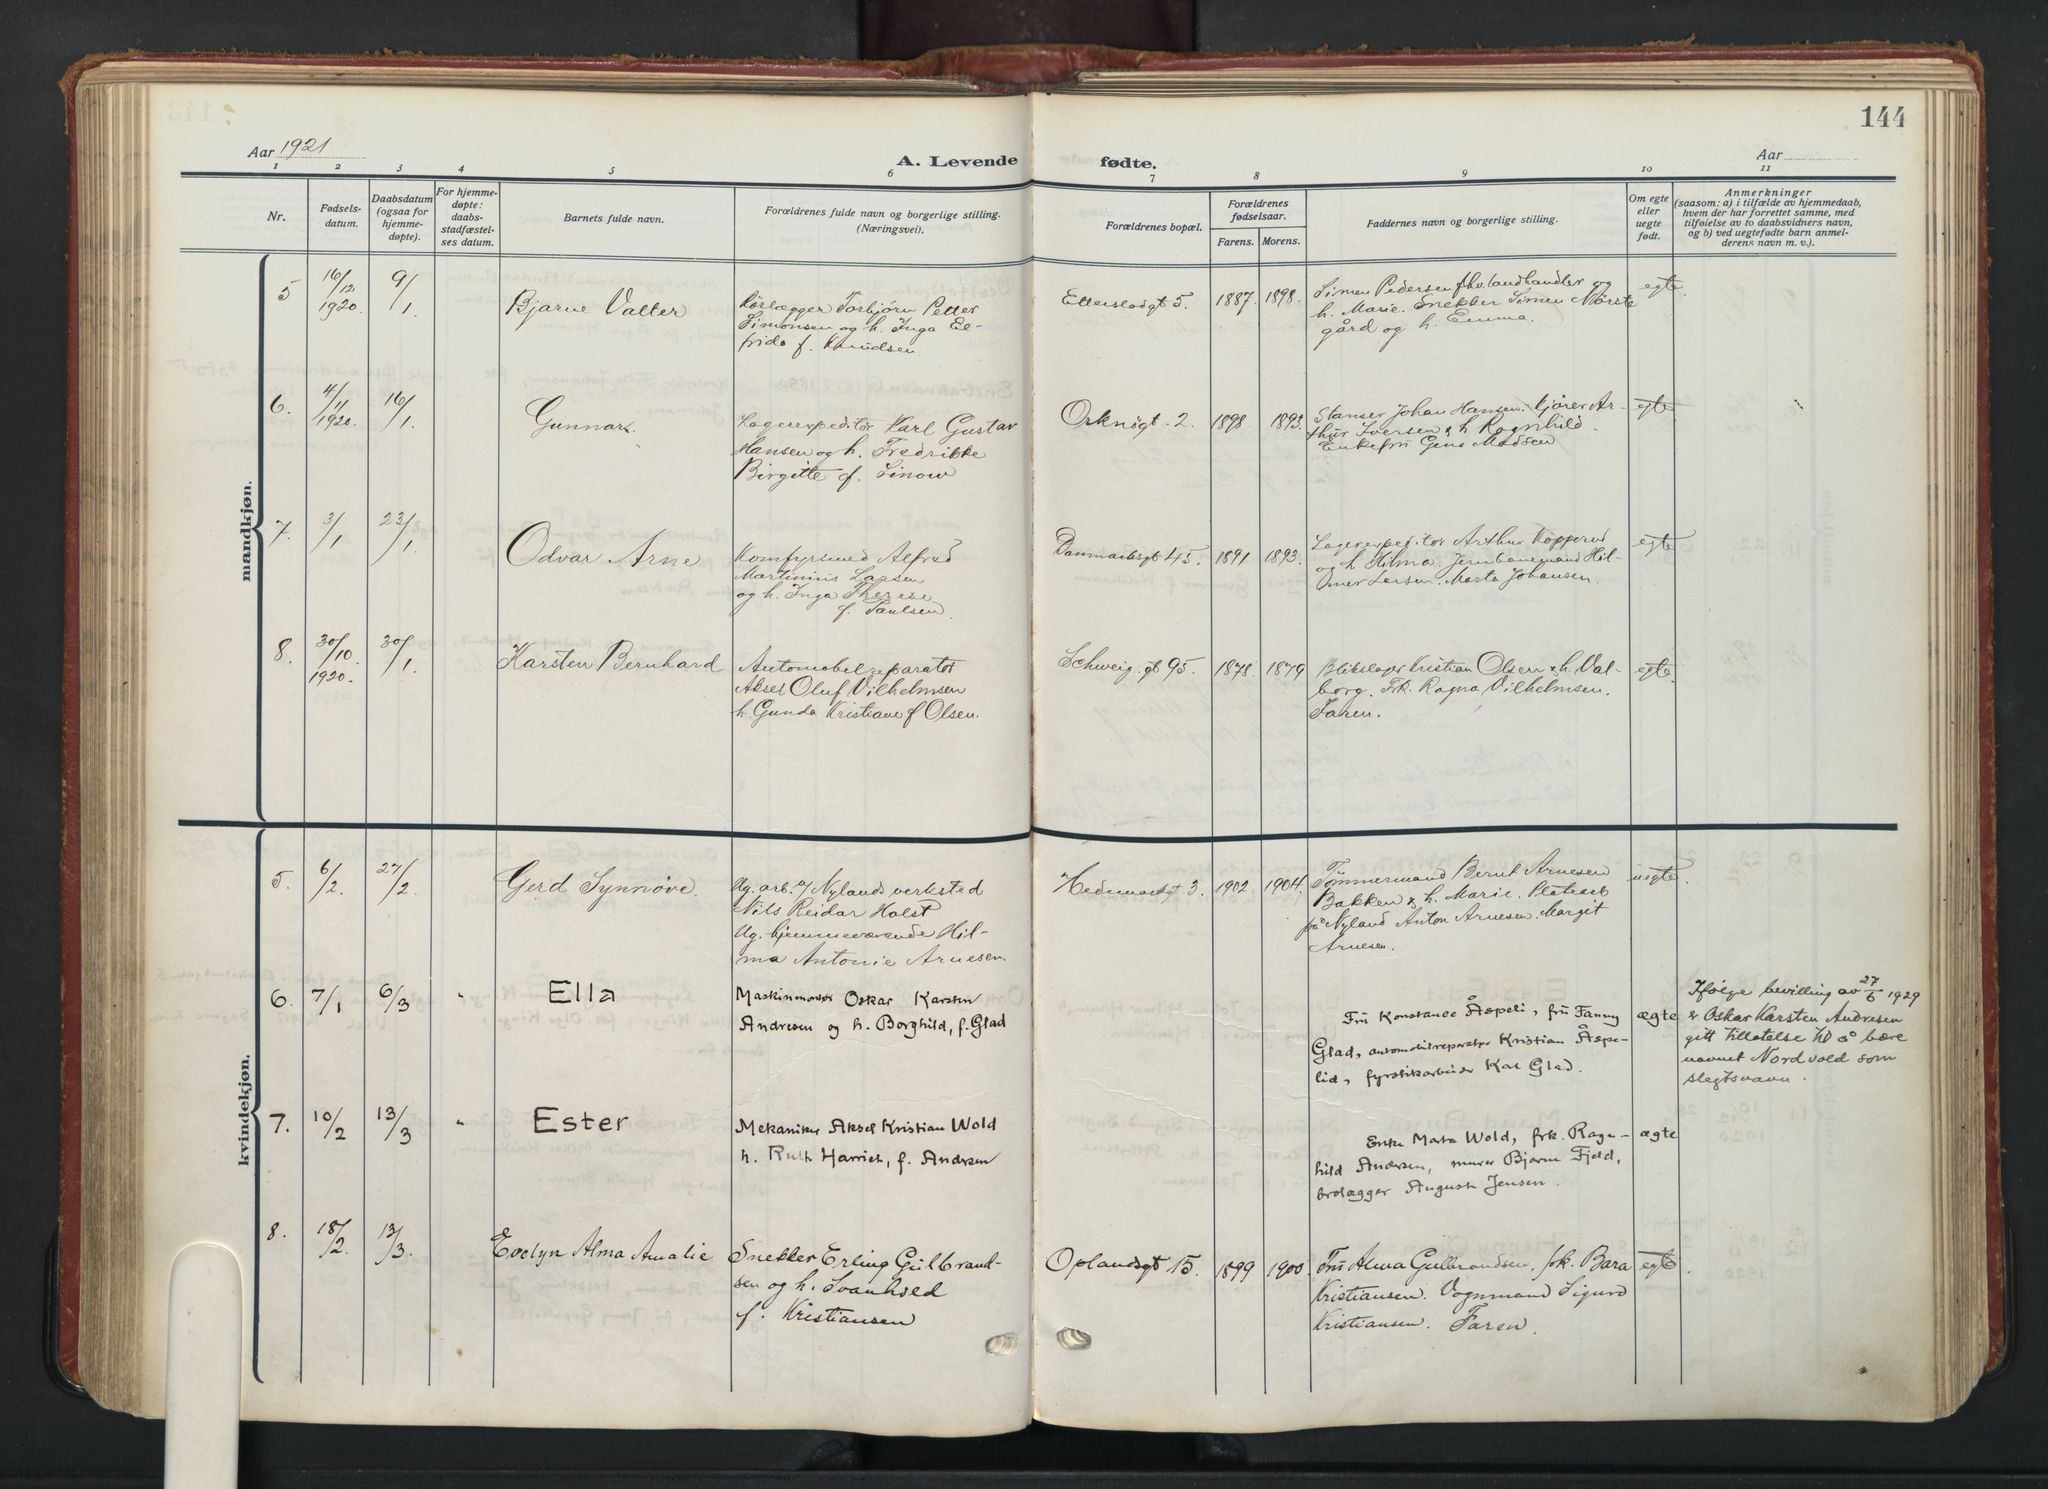 144
Aar 1921
A. Levende
fødte.
Aar
1 2 3 4 5 6 7 8 9 10 11
Nr.
Fødsels-
datum.
Daabsdatum
(ogsaa for
hjemme-
døpte).
For hjemme-
døpte:
daabs-
stadfæstel-
ses datum.
Barnets fulde navn.
Forældrenes fulde navn og borgerlige stilling.
(Næringsvei).
Forældrenes bopæl.
Forældrenes
fødselsaar.
Farens. Morens.
Faddernes navn og borgerlige stilling.
Om egte
eller
uegte
født.
Anmerkninger
(saasom: a) i tilfælde av hjemmedaab,
hvem der har forrettet samme, med
tilføielse av to daabsvidners navn,
og b) ved uegtefødte barn anmel-
derens navn m. v.).
mandkjøn.
5
16/12
1920.
9/1.
Bjarne Valter
Rørlægger Torbjørn Petter
Simonsen og h. Inga El-
frida f. Knudsen.
Etterstadgt 5.
1887. 1898.
Simen Pedersen fhv. landhandler og
h. Marie. Snekker Simen Nørste
gård og h. Emma.
egte.
6.
4/11
1920.
16/1.
Gunnar.
Lagerexpeditør Karl Gustav
Hansen og h. Fredrikke
Birgitte f. Sinow
Orknøgt. 2.
1898 1893.
Stanser Johan Hansen. Kjører Ar-
thur Iversen & h. Ragnhild.
Enkefru Gena Madsen
egte
7.
3/1
23/1.
Odvar Arne
Komfyrsmed Alfred
Martinius Larsen
og h. Inga Therese
f. Paulsen.
Danmarksgt 45.
1891 1893.
Lagerexpeditør Arthur Kopperud
og h. Hilma. Jernbanemand Hil-
mer Larsen. Marta Johansen.
egte
8.
30/10
1920.
30/1.
Karsten Bernhard
Automobelreparatør
Aksel Oluf Vilhelmsen
h. Gunda Kristiane f Olsen.
Schweig. gt 95.
1878. 1879
Blikslager Kristian Olsen & h. Val-
borg. Frk. Ragna Vilhelmsen.
Faren.
egte.
kvindekjøn.
5.
6/2.
27/2.
Gerd Synnöve.
Ug. arb. v/ Nylands verksted
Nils Reidar Holst
Ug. hjemmeværende Hil-
ma Antonie Arnesen.
Hedemarksgt 3.
1902. 1904.
Tömmermand Bernt Arnesen
Bakken & h. Marie. Platearb
på Nyland Anton Arnesen. Margit
Arnesen.
uegte.
6.
7/1
6/3
"
Ella
Maskinmontør Oskar Karsten
Andresen og h. Borghild, f. Glad
Fru Konstance Åspeli, fru Fanny
Glad, automobilreparatør Kristian Åspe-
lid, fyrstikarbeider Karl Glad.
ægte
Ifølge bevilling av 27/6 1929
er Oskar Karsten Andresen
gitt tillatelse til å bære
navnet Nordvold som
slegtsnavn.
7.
10/2
13/3
"
Ester
Mekaniker Aksel Kristian Wold
h. Ruth Harriet, f. Andersen
Enke Marta Wold, frk. Ragn-
hild Andersen, murer Bjarne Fjeld,
brolægger August Jensen.
ægte
8.
18/2.
13/3.
Evelyn Alma Amalie
Snekker Erling Gulbrand-
sen og h. Svanhild
f. Kristiansen
Oplandsgt 15.
1899 1900.
Fru Alma Gulbrandsen. frk. Bara
Kristiansen. Vognmand Sigurd
Kristiansen. Faren.
egte